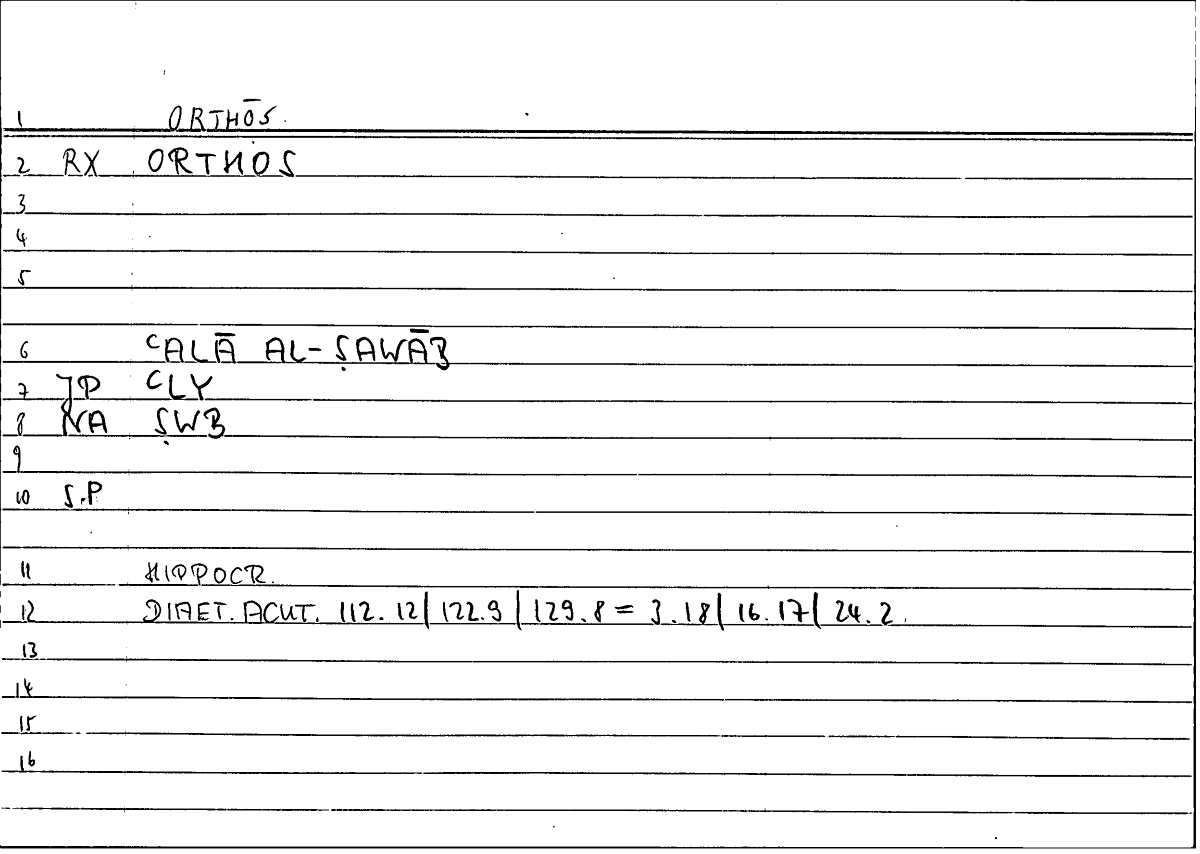 1 ORTHŌS.
2 RX ORTHOS
3
4
5
6 ᶜALĀ AL-ṢAWĀB
7 JP ᶜLY
8 NA ṢWB
9
10 S.P
11 HIPPOCR.
12 DIAET. ACUT. 112. 12| 122.9 | 129.8 = 3.18| 16.17| 24.2.
13
14
15
16